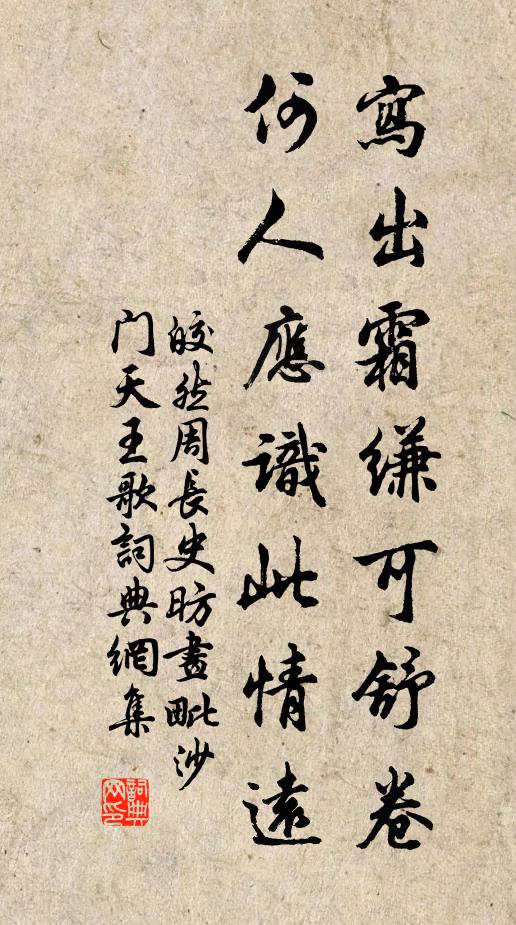 寫出霜縑可舒卷
何人應識此情遠
皎然周長史昉畫毗沙
門天王歌詞典網集
詞典网印